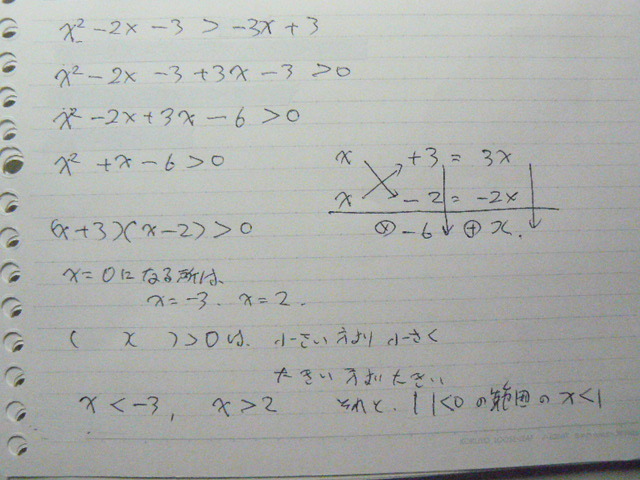 x² - 2x - 3 > -3x + 3
x² - 2x - 3 + 3x - 3 > 0
x² - 2x + 3x - 6 > 0
x² + x - 6 > 0
x +3 = 3x
x -2 = -2x
⊗ -6 ⊕ x.
(x+3)(x-2) > 0
x = 0 になる所は、
x = -3. x = 2.
( x ) > 0 は、小さい方より小さく
大きい方より大きい
x < -3, x > 2 それと、| |<0 の範囲の x<1